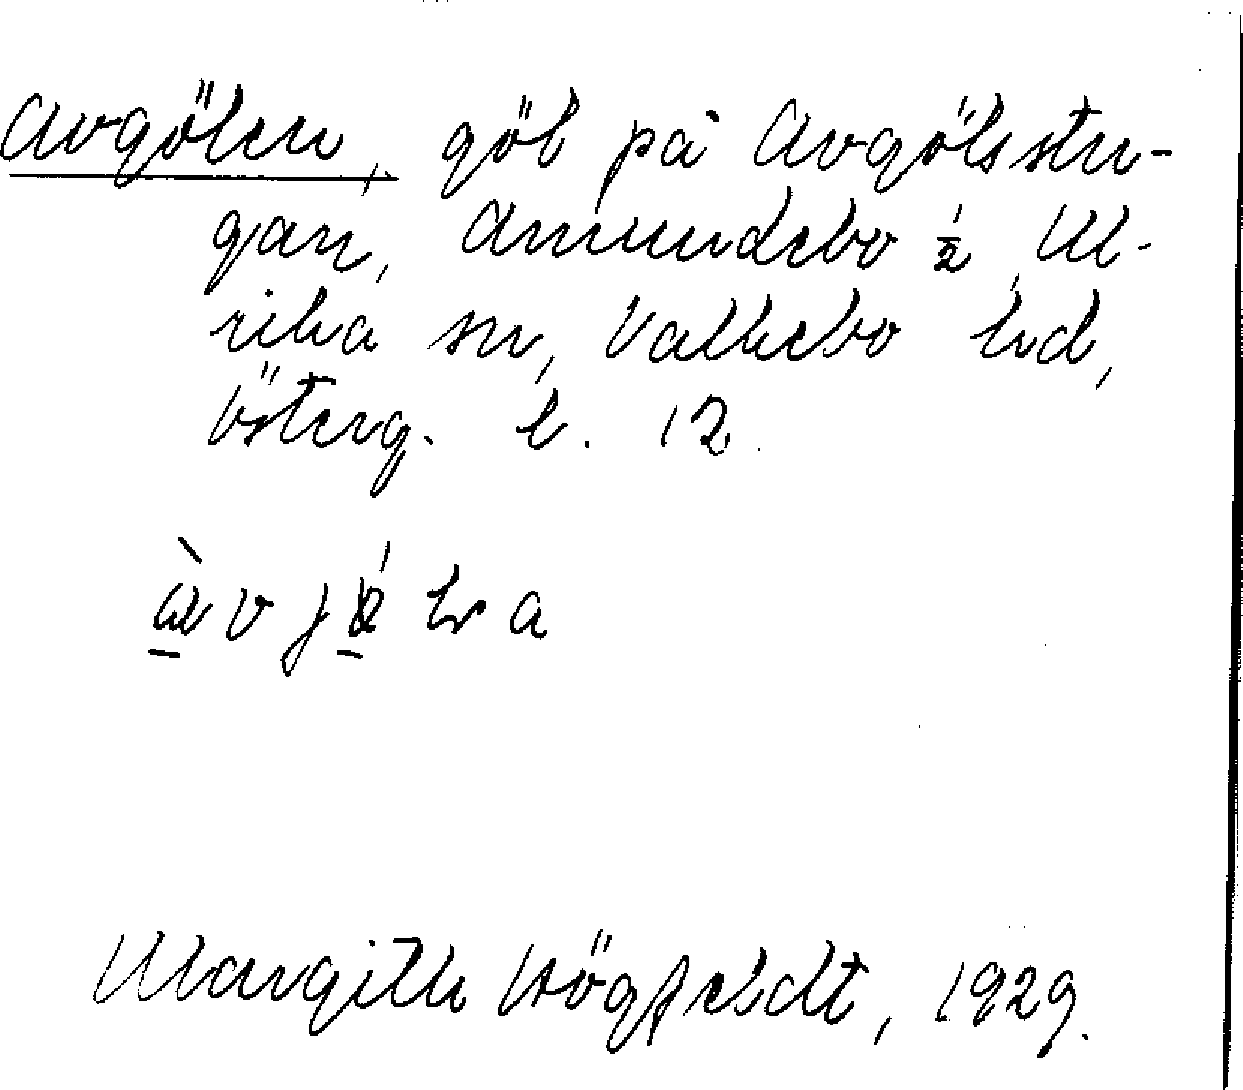 Avgölen, göl på Avgölsstu-
gan, Amundebo ½, Ul-
rika sn, Valkebo hd,
Österg. l. 12.
Margith Högfeldt, 1929.